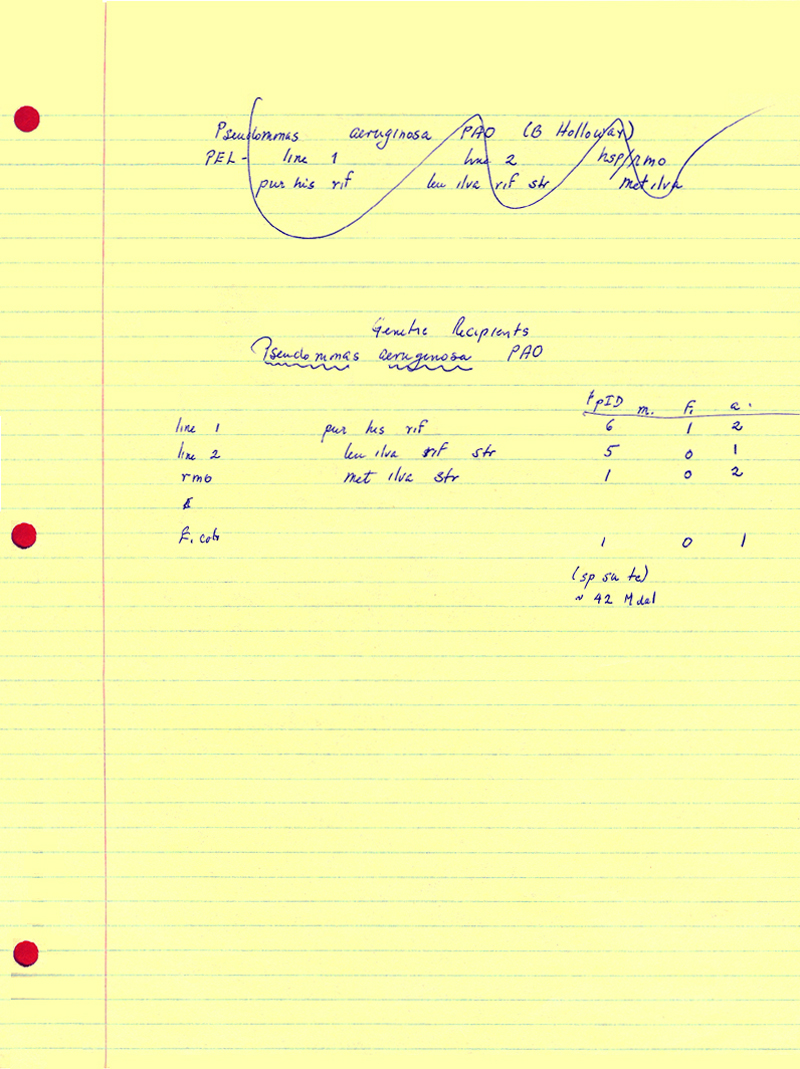 Pseudomonas aeruginosa PAO (B Holloway)
PEL- line 1 line 2 hsp/rmo
pur his rif leu ilva rif str met ilva
Genetic Recipients
Pseudomonas aeruginosa PAO
m. F. a.
line 1 pur his rif 6 1 2
line 2 leu ilva rif str 5 0 1
rmo met ilva str 1 0 2
E. coli 1 0 1
(sp su tc)
~ 42 Mdal